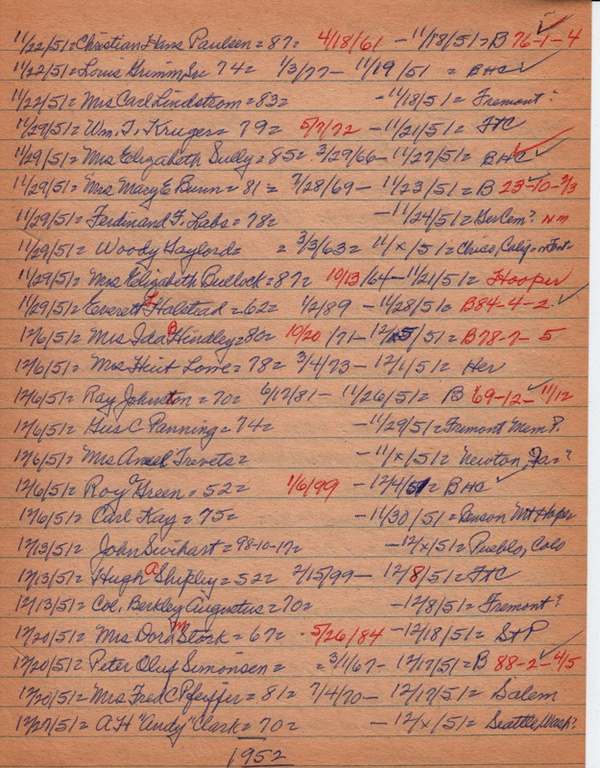 11/22/51= Christian Hans Paulsen = 87= 4/18/61 - 11/18/51= B 76-1-4 5
11/22/51= Louis Grimm Sr 74= 1/3/77 - 11/19/51 = BHC
11/22/51= Mrs Carl Lindstrom = 83= - 11/18/51= Fremont?
11/29/51= Wm. T. Kruger = 79= 5/7/72 - 11/21/51= FTC
11/29/51= Mrs Elizabeth Sully = 85= 3/29/66 - 11/27/51= BHC
11/29/51= Mrs Macy E Bunn = 81= 7/28/69 - 11/23/51= B 23-10-2/3
11/29/51= Ferdinand F. Labs = 78= - 11/24/51= Ger Cem? NM
11/29/51= Woody Gaylord= = 3/3/63= 11/x/51= Chico, Calif =
11/29/51= Mrs Elizabeth Bullock = 87= 10/13/64 - 11/21/51= Hooper
11/29/51= Everett F Halstead = 62= 1/2/89 - 11/28/51= B84-4-2
12/6/51= Mrs Ida Hindley = 80= 10/20/71 - 12/5/51= B78-7-5
12/6/51= Mrs Hirt Lowe = 78= 3/4/73 - 12/1/51= Her
12/6/51= Ray Johnston = 70= 6/17/81 - 11/26/51= B 69-12-11/12
12/6/51= Gus C Panning = 74= - 11/29/51= Fremont Mem P.
12/6/51= Mrs Ansel Trevets= - 11/x/51= Newton, Ia=?
12/6/51= Roy Green = 52= 1/6/99 - 12/4/51= BHC
12/6/51= Carl Kay = 75= - 11/30/51= Benson Mt Hope
12/13/51= John Swihart = 98-10-17= - 12/x/51= Pueblo, Colo
12/13/51= Hugh A Shipley = 52= 2/15/99 - 12/8/51= FTC
12/13/51= Col. Berkley Augustus = 70= - 12/8/51= Fremont?
12/20/51= Mrs Dora M Stork = 67= 5/26/84 - 12/18/51= St P
12/20/51= Peter Oluf Simonsen= = 3/1/67 - 12/17/51= B 88-2-4/5
12/20/51= Mrs Fred C Pfeiffer = 81= 7/4/70 - 12/17/51= Salem
12/27/51= A.H "Andy" Clark = 70= - 12/x/51= Seattle, Wash?
1952